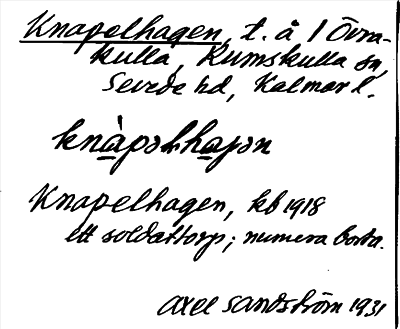 Knapelhagen, t. å 1 Övra-
kulla, Rumskulla sn,
Sevede hd, Kalmar l.
knàpəlhaɡən
Knapelhagen, kb 1918
ett soldattorp; numera borta.
Axel Sandström 1931